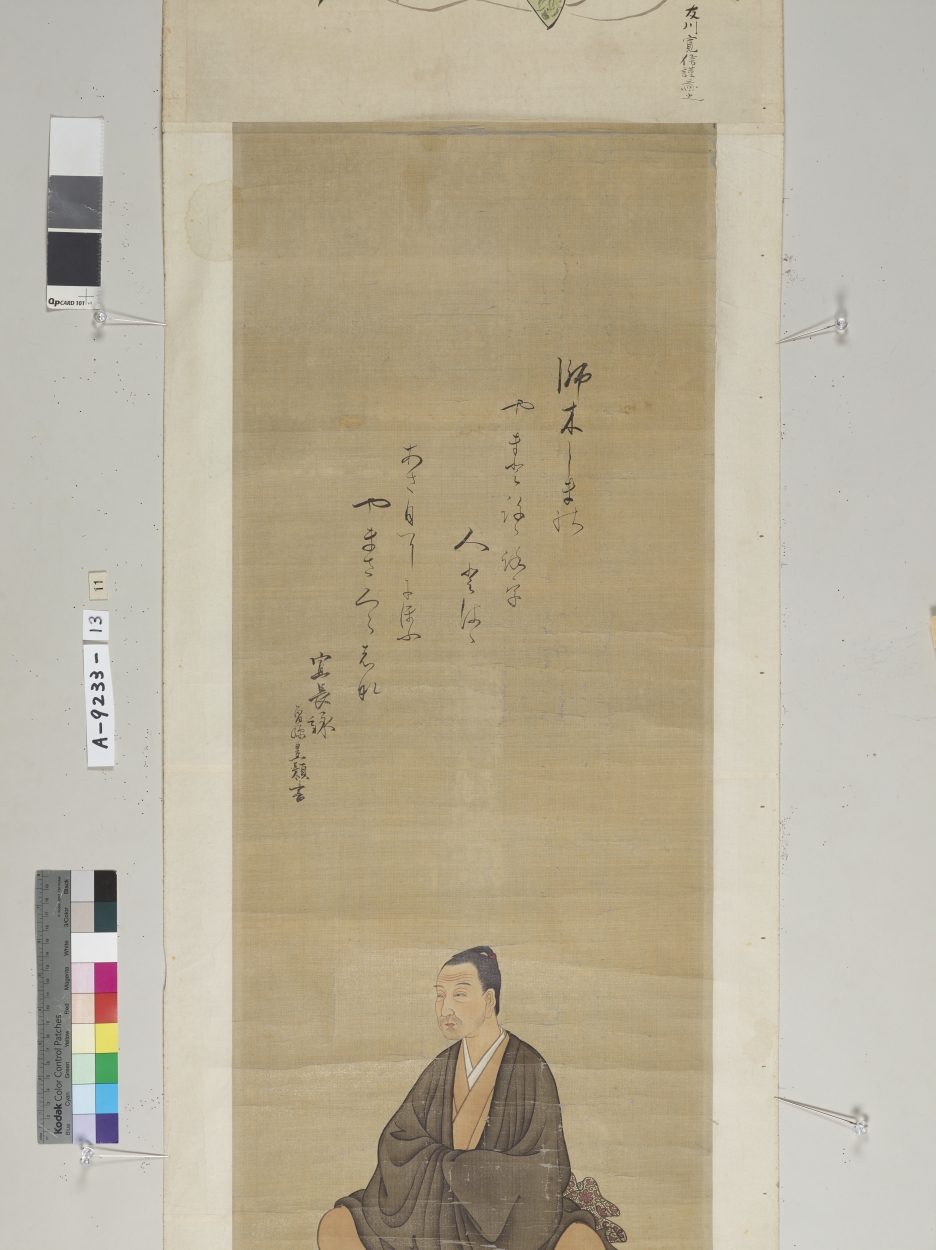 友川寛信謹
師木しまの
やまとこゝろを
人とはゝ
あさ日ににほふ
やまさくら花
宜長詠
書
QpCARD 101
11
A-9233-13
Kodak Color Control Patches
Blue
Cyan
Green
Yellow
Red
Magenta
White
3/Color
Black